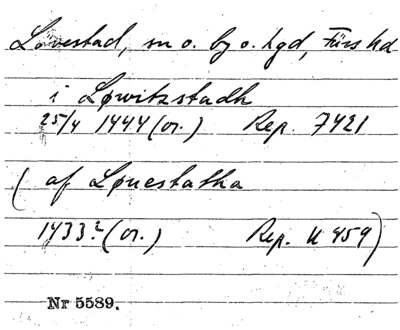 Lövestad, sn o. by o. hgd, Färs hd
i Løwitzstadh
25/4 1444 (or.) Rep. 7421
(af Løuestatha
1433? (or.) Rep. U 459)
Nr 5589.